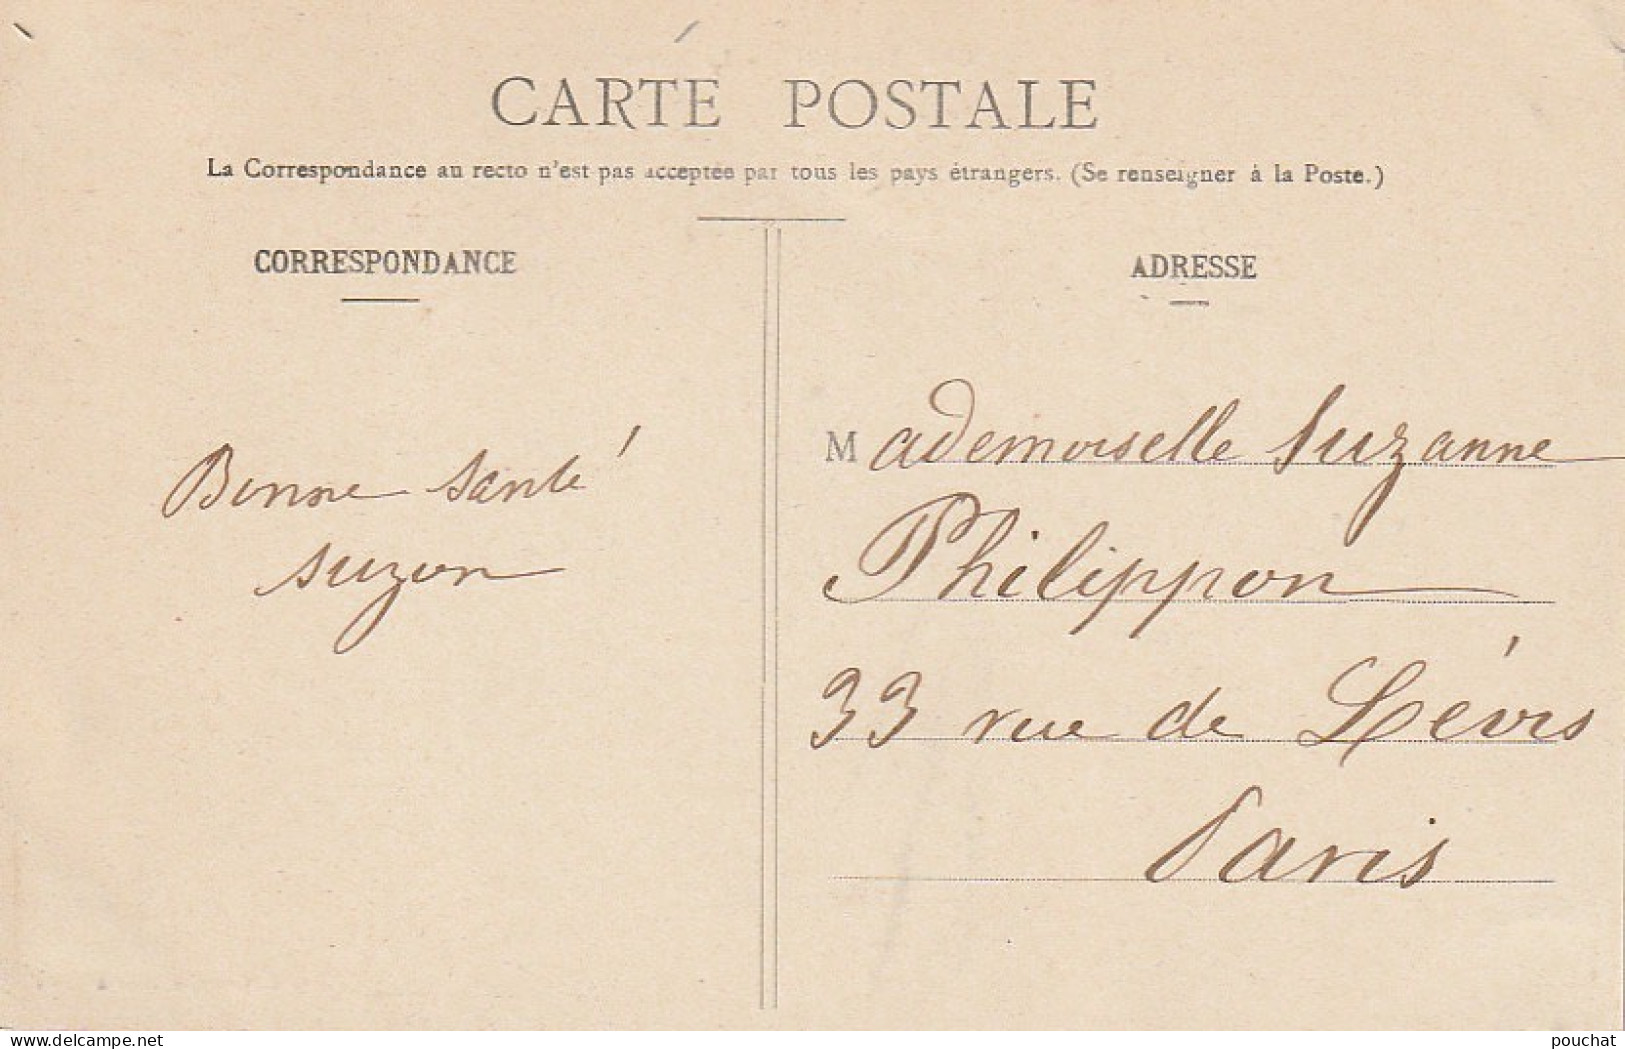 CARTE POSTALE
La Correspondance au recto n'est pas acceptée par tous les pays étrangers. (Se renseigner à la Poste.)
CORRESPONDANCE
Bonne santé
suzon
ADRESSE
Mademoiselle Suzanne
Philippon
33 rue de Lévis
Paris
www.delcampe.net
pouchat